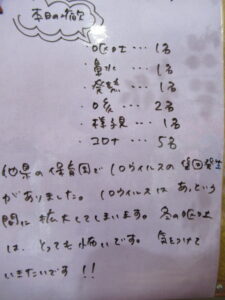 本日の病欠
・嘔吐… 1名
・鼻水… 1名
・発熱… 1名
・咳… 2名
・様子見… 1名
・コロナ… 5名
他県の保育園でノロウイルスの集団発生
がありました。ノロウイルスは あっという
間に拡大してしまいます。冬の嘔吐
は、とっても怖いです。気をつけて
いきたいです!!